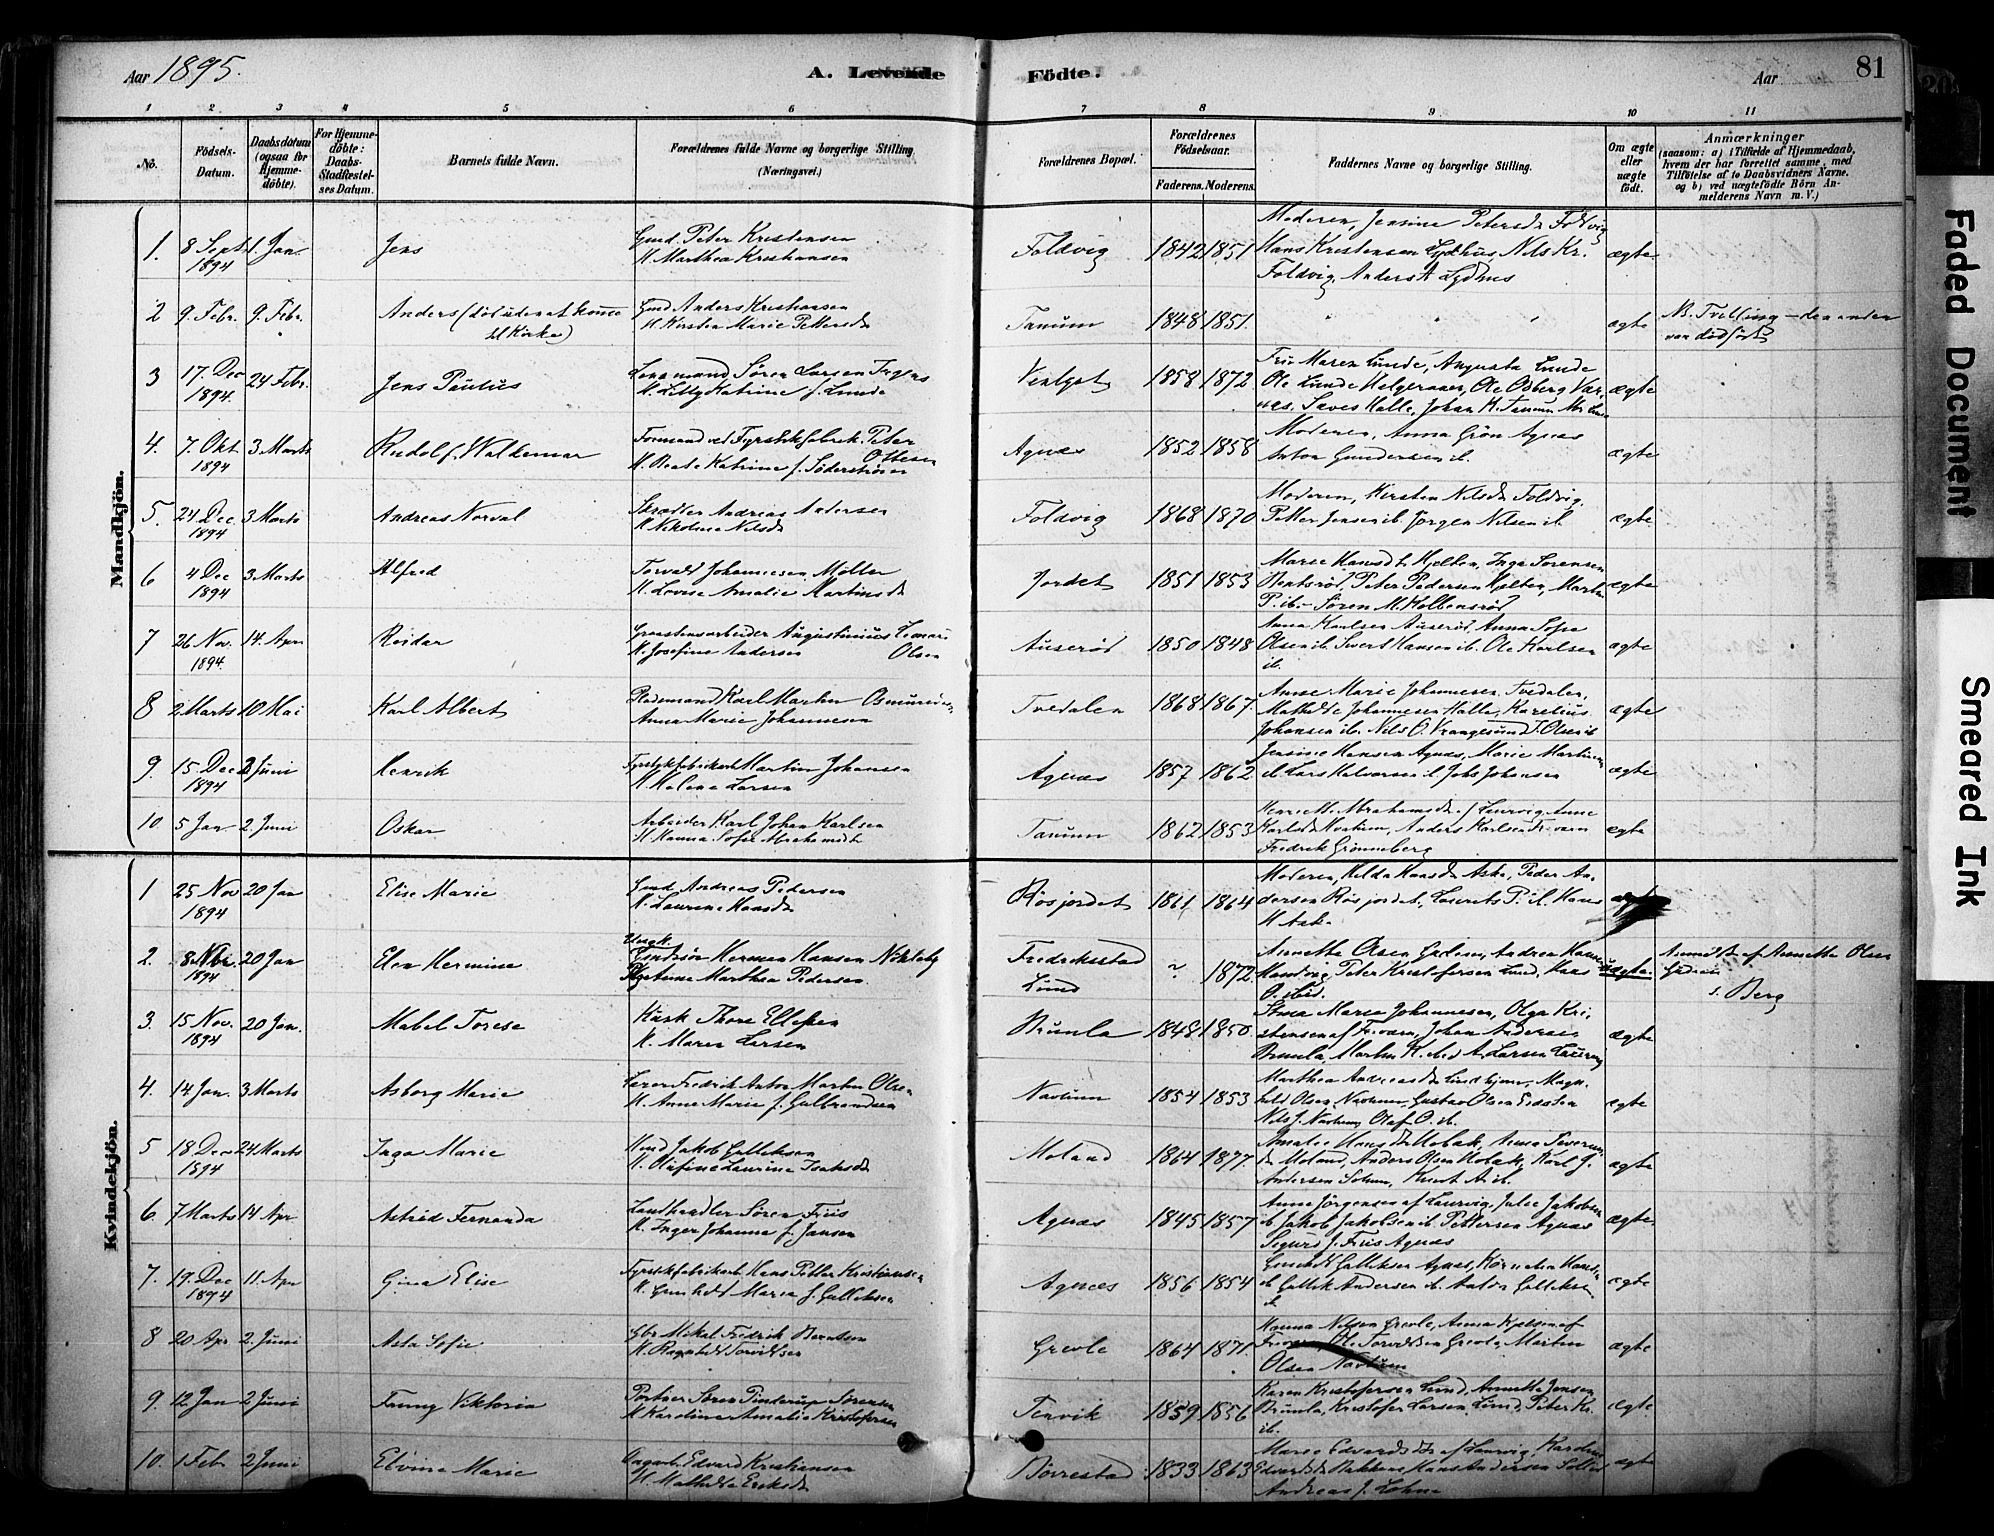 Aar 1895. A. Levende Födte. Aar 81
1 2 3 4 5 6 7 8 9 10 11
No. Födsels-Datum. Daabsdatum (ogsaa for Hjemmedöbte). For Hjemmedöbte: Daabs-Stadfæstelses Datum. Barnets fulde Navn. Forældrenes fulde Navne og borgerlige Stilling. (Næringsvei.) Forældrenes Bopæl. Forældrenes Födselsaar. Faderens. Moderens. Faddernes Navne og borgerlige Stilling. Om ægte eller uægte födt. Anmærkninger (saasom: a) i Tilfælde af Hjemmedaab, hvem der har forrettet samme, med Tilföielse af to Daabsvidners Navne. og b) ved uægtefödte Börn Anmelderens Navn m. V.)
Mandkjön.
1. 8 Sept 1894 1. Jan. Jens Gmd. Peter Kristensen H. Marthea Kristiansen Foldvig 1842 1851 Moderen, Jensine Petersdt Foldvig Hans Kristensen Lydhus, Nils Kr. Foldvig, Anders A Lydhus ægte
2 9. Febr. 9. Febr. Anders (död uden at komme til Kirke) Gmd Anders Kristiansen H. Kirsten Marie Pettersdt Tanum 1848 1851. ægte NB. Tvilling – den anden var dödfödt
3 17. Dec 1894. 24 Febr. Jens Paulus Lensmand Sören Larsen H. Lilly Katrine f. Lunde 1858 1872 Fru Maren Lunde, Augusta Lunde Ole Lunde Helgeraaen, Ole Odberg Halle, Johan H. Tanum ægte
4. 7. Okt 1894 3 Marts Rudolf Waldemar Formand ved Fyrstikfabrik. Peter Ottesen H. Beate Katrine f. Söderström Agnæs 1852 1858 Moderen, Anna Grön Agnæs Anton Gundersen ib. ægte
5. 24 Dec. 1894 3 Marts Andreas Norval Skrædder Andreas Andersen H. Nikoline Nilsdt Foldvig 1868 1870 Moderen, Kirsten Nilsdt Foldvig, Petter Jensen ib. Jørgen Nilsen ib. ægte
6 4 Dec 1894 3 Marts Alfred Torvald Johannesen Möller H. Lovise Amalie Martinsdt Jordet 1851 1853 Marie Hansdt Hjelten, Inga Sörensen Peter Pedersen Hjelten, Martin P. ib. – Sören M. Kolbensröd ægte
7 26 Nov. 1894 14. Apr Reidar Grovstensarbeider Augustinius Olsen H. Josefine Andersen Auseröd 1850 1848 Anna Karlsen Auseröd, Anna Sofie Olsen ib. Sivert Hansen ib. Ole Karlsen ib. ægte
8 2 Marts 10 Mai Karl Albert Karl Martin Anna Marie Johannesen Tvedalen 1868 1867. Anne Marie Johannesen Tvedalen, Mathilde Johannesen Halle, Karelius Johansen ib. Nils O. Vrangesund, T. Olsen ib ægte
9. 15. Dec 1894 2 Juni Henrik Fyrstikfabrikarb Martin Johansen H. Helene Larsen Agnæs 1857 1862 Jensine Hansen Agnæs, Marie Martinsen ib Lars Halvorsen ib Johs Johansen ægte
10. 5 Jan. 2. Juni Oskar Arbeider Karl Johan Karlsen H. Hanna Sofie Abrahamsdt Tanum 1862 1853 Henriette Abrahamsdt f. Laurvig, Anne Anders Karlsen Fredrik Grönneberg ægte
Kvindekjön.
1 25 Nov 1894 20 Jan Elise Marie Gmd Andreas Pedersen H. Laurine Hansdt Rösjordet 1861 1864 Moderen, Helda Hansdt Aske, Peder Andersen Rösjordet, Laurits P. ib. Hans H Ask.
2. 8 Nbr. 1894 20 Jan Elen Hermine Ungk. Herman Hansen Pige Anne Marthea Pedersen. Fredriksstad Lund ~ 1872. Annette Olsen Andrea Hansen Peter Kristofersen Lund, Hans O. ibid. uægte. Anmeldt af Annette Olsen i. Berg
3. 15 Nov. 1894 20 Jan. Mabel Torese Husk Thore Ellefsen H. Maren Larsen Brunla 1848 1850. Stina Marie Johannesen, Olga Kristensen af Fredværn, Johan Andersen Brunla, Martin H. ibid A. Larsen Laurvig ægte
4. 14 Jan. 3 Marts Asborg Marie Fredrik Anton Martin Olsen H. Anne Marie f. Gulbrandsen Navlum 1854 1853 Marthea Andreasdt Lindhjem, Magnhild Olsen Navlum, Gustav Olsen Nils J. Navlum, Olaf O. ib. ægte
5 18 Dec 1894 24 Marts Inga Marie Jakob Gulliksen H. Olufine Laurine Isaksdt Moland 1864 1877. Amalie Hansdt Holak, Anna Moland, Anders Olsen Holak, Karl J. Andersen Knut A ib. ægte
6. 7 Marts 14 Apr Astrid Fernanda Landhandler Sören Friis H. Inger Johanne f. Jansen Agnæs 1845 1857 Anna Jörgensen af Laurvig, Julie Jakobsen ib. Jakob Jakobsen ib. Pettersen Agnæs Sigurd J. Friis Agnæs ægte.
7. 19. Dec 1894 11. Apr Gina Elise Fyrstikfabrikarb Hans Petter Kristiansen H. Gunhild Maria f. Gulliksen Agnæs 1856 1854 Gunhild Gulliksen Agnæs, Karneelia Hansen ib. Gullik Andersen ib. Anton Gulliksen ib ægte
8 20 Apr 2. Juni Asta Sofie Gbr Mikal Fredrik Berntsen H. Ragnhild Torvildsen Grevle 1864 1871. Hanna Nilsen Grevle, Anna Kjelsen af Ole Torvildsen Grevle, Martin Olsen Navlum ægte
9. 12 Jan 2 Juni Fanny Viktoria Portner Sören Pinterup Sörensen H Karoline Amalie Kristofersen Tenvik 1859 1856 Karen Kristofersen Lund, Annette Jensen Brunla, Kristofer Larsen Lund, Peter Kr. ib. ægte
10. 1 Febr 2 Juni Elvine Marie Edvard Kristiansen H. Mathilde Eriksdt Börrestad 1833 1863 Marie Edvardsdt af Laurvig, Karoline Edvardsdt Bakkene Hans Andersen Andreas J. Lohne ægte
Faded Document
Smeared Ink